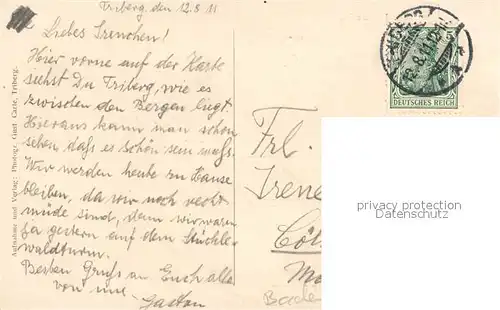 Triberg, den 12.8 11
Liebes Irenchen!
Hier vorne auf der Karte
siehst Du Triberg, wie es
zwischen den Bergen liegt
Hieraus kann man schon
sehen, daß es schön sein muß.
Wir werden heute zu Hause
bleiben, da wir noch recht
müde sind, denn wir waren
ja gestern auf dem Stöckle-
waldturm.
Besten Gruß an Euch alle
von mir
Gaston
Aufnahme und Verlag: Photogr. Gust. Carle, Triberg.
DEUTSCHES REICH
Frl.
Irene
Cöl
privacy protection
Datenschutz